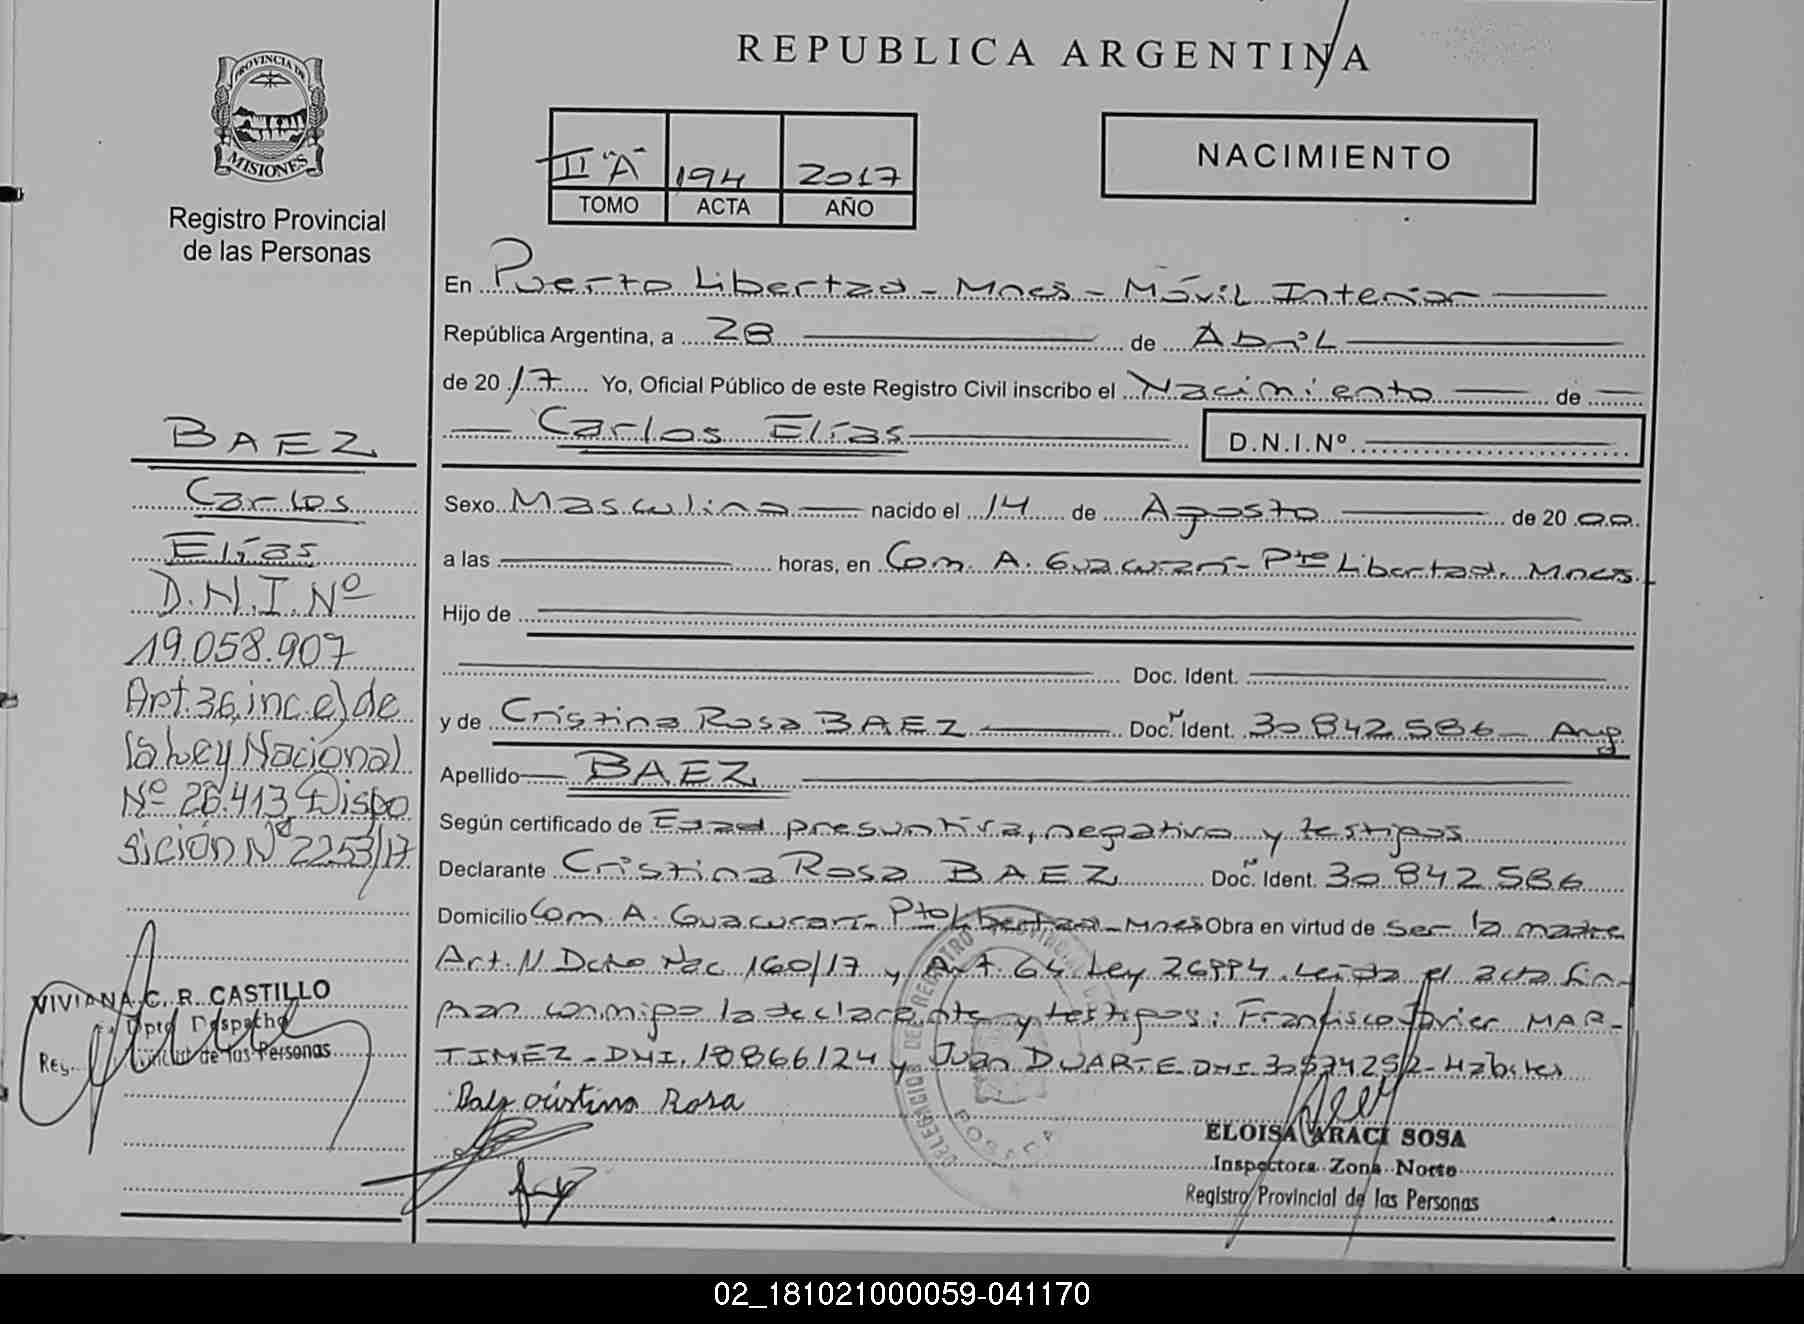 REPUBLICA ARGENTINA
PROVINCIA DE
MISIONES
Registro Provincial
de las Personas
II "A" 194 2017
TOMO ACTA AÑO
NACIMIENTO
En Puerto Libertad - Mnes - Móvil Interior
República Argentina, a 28 de Abril
de 2017 Yo, Oficial Público de este Registro Civil inscribo el Nacimiento de
Carlos Elías D.N.I.Nº
Sexo Masculino nacido el 14 de Agosto de 2000.
a las horas, en Com. A. Guacurarí - Pto Libertad. Mnes.
Hijo de
Doc. Ident.
y de Cristina Rosa BAEZ Doc. Ident. 30.842.586 - Arg
Apellido BAEZ
Según certificado de Edad presuntiva, negativo y testigos
Declarante Cristina Rosa BAEZ Doc. Ident. 30.842.586
Domicilio Com. A. Guacurarí - Pto Libertad - Mnes Obra en virtud de ser la madre
Art. 11 Dcto Nac 160/17 y Art. 64 Ley 26994. Leída el acta fir-
man conmigo la declarante y testigos: Francisco Javier MAR-
TINEZ - DNI. 18866124 y Juan DUARTE DNI. 30574252 - Hábiles
Baez cristina Rosa
ELOISA ARACI SOSA
Inspectora Zona Norte
Registro Provincial de las Personas
BAEZ
Carlos
Elías
D.N.I.Nº
19.058.907
Art. 36, inc. e) de
la Ley Nacional
Nº 26.413, Dispo
sición Nº 2253/17
VIVIANA C. R. CASTILLO
Dpto Despacho
de las Personas
02_181021000059-041170